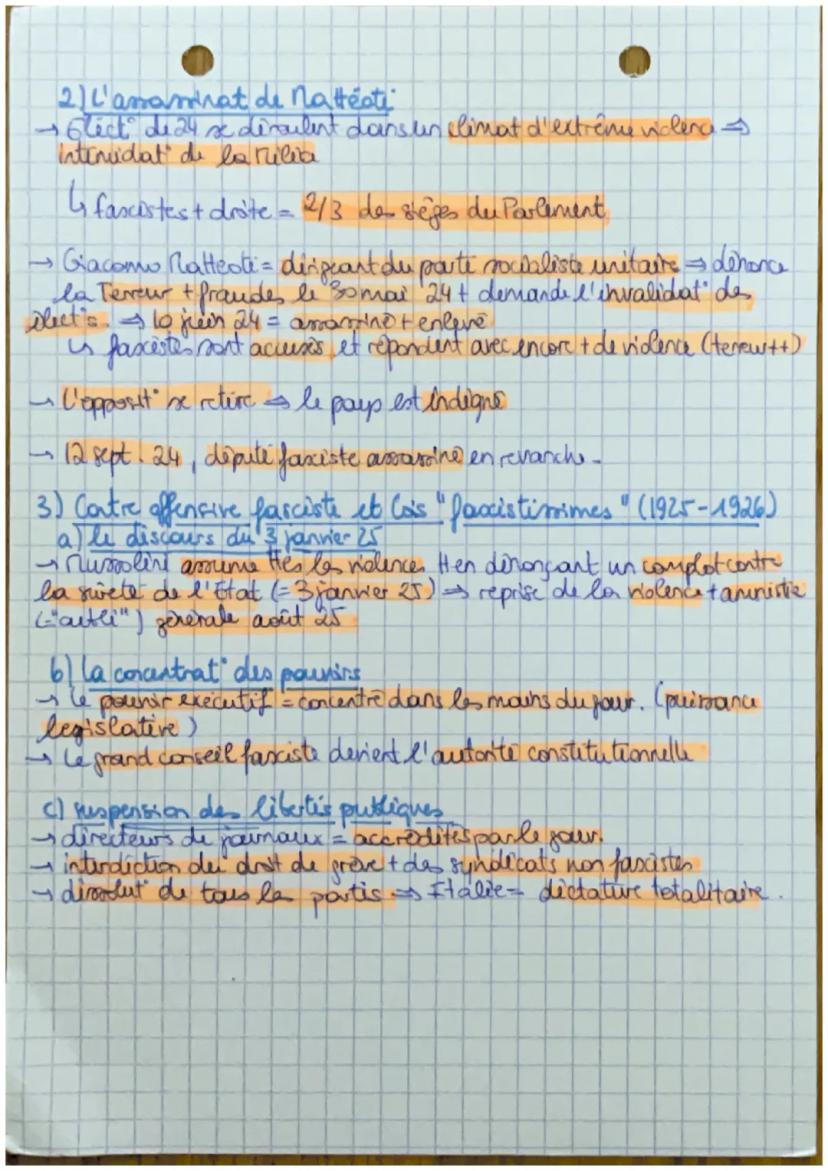 2) L'assassinat de Mattéoti
→ Élect° de 24 se déroulent dans un climat d'extrême violence ⇒
intimidat° de la Milice
↳ fascistes + droite = 2/3 des sièges du Parlement
→ Giacomo Matteoti = dirigeant du parti socialiste unitaire ⇒ dénonce
la Terreur + fraudes le 30 mai 24 + demande l'invalidat° des
élect°s. ⇒ 10 juin 24 = assassiné + enlevé
↳ fascistes sont accusés et répondent avec encore + de violence (terreur ++)
→ L'opposit° se retire ⇒ le pays est indigné
→ 12 sept. 24, député fasciste assassiné en revanche.
3) Contre offensive fasciste et lois "fascistissimes" (1925-1926)
a) le discours du 3 janvier 25
→ Mussolini assume ttes les violences tt en dénonçant un complot contre
la sureté de l'Etat (= 3 janvier 25) ⇒ reprise de la violence + amnistie
(= ) générale août 25
b) la concentrat° des pouvoirs
→ Le pouvoir exécutif = concentré dans les mains du gouv. (puissance
législative)
→ Le grand conseil fasciste devient l'autorité constitutionnelle
c) suspension des libertés publiques
→ directeurs de journaux = accrédités par le gouv.
→ interdiction du droit de grève + des syndicats non fascistes
→ dissolut° de tous les partis ⇒ Italie = dictature totalitaire.